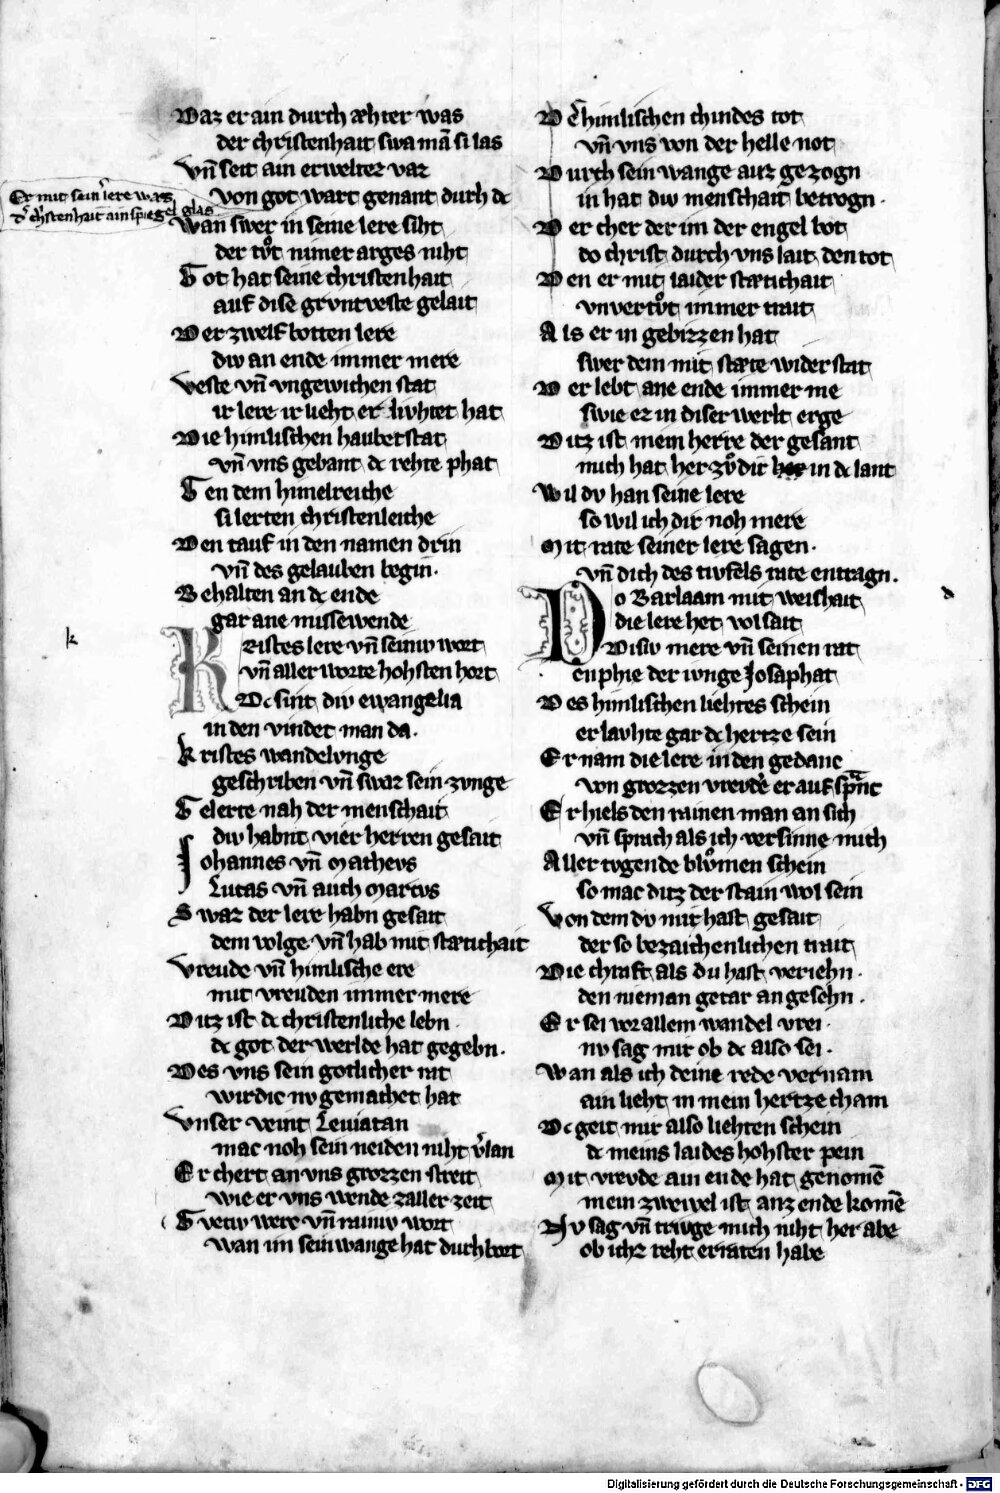 Daz er ain durch æhter was
der christenhait swa mā si las
Vn̄ seit ain erwelter vaz
von got wart genant durh dc
Er mit seinˀ lere was
dˀ christenhait ain spiegel glas
Wan swer in seine lere siht
der tvͦt nimer arges niht
Got hat seine christenhait
auf dise grvntveste gelait
Der zwelf botten lere
div an ende immer mere
Veste vn̄ vngewichen stat
ir lere ir lieht erlivhtet hat
Die himlischen haubetstat
vn̄ vns gebant dc rehte phat
Gen dem himelreiche
si lerten christenleiche
Den tauf in den namen drin
vn̄ des gelauben begin.
Behalten an dc ende
gar ane missewende
k
Kristes lere vn̄ seiniv wort
vn̄ aller worte hohsten hort
Dc sint div ewangelia
in den vindet man da.
Kristes wandelvnge
geschriben vn̄ swaz sein zvnge
Gelerte nah der menschait
div habnt vier herren gesait
Johannes vn̄ Mathevs
Lucas vn̄ auch Marcvs
Swaz der lere habn gesait
dem volge vn̄ hab mit stætichait
Vreude vn̄ himlische ere
mit vreuden immer mere
Ditz ist dc christenliche lebn.
dc got der werlde hat gegebn.
Des vns sein gotlicher rat
wirdic nv gemachet hat
Vnser veint Leviatan
mac noh sein neiden niht vˀlan
Er chert an vns grozzen streit
wie er vns wende zaller zeit
Gvetiv were vn̄ rainiv wort
wan im sein wange hat durchbort
Dc himlischen chindes tot
vn̄ vns von der helle not
Durch sein wange auz gezogn
in hat div menschait betrogn.
Der cher der im der engel bot
do christ durch vns lait den tot
Den er mit laider stætichait
vnvertvͦt immer trait
Als er in gebizzen hat
swer dem mit stæte wider stat
Der lebt ane ende immer me
swie ez in diser werlt erge
Ditz ist mein herre der gesant
mich hat her zvͦ dir in dc lant
Wil dv han seine lere
so wil ich dir noh mere
Mit rate seiner lere sagen.
vn̄ dich des tivfels rate entragn.
d
Do Barlaam mit weishait
die lere het vol sait
Disiv mere vn̄ seinen rat
enphie der ivnge Josaphat
Des himlischen liehtes schein
erlavhte gar dc hertze sein
Er nam die lere in den gedanc
von grozzen vrevdˀ er auf spranc
Er hiels den rainen man an sich
vn̄ sprach als ich versinne mich
Aller tvgende blvͦmen schein
so mac ditz der stain wol sein
Von dem dv mir hast gesait
der so bezaichenlichen trait
Die chraft als du hast veriehn.
den nieman getar an gesehn.
Er sei vor allem wandel vrei.
nv sag mir ob dc also sei.
Wan als ich deine rede vernam
ain lieht in mein hertze cham
Dc geit mir also liehten schein
dc meins laides hohster pein
Mit vrevde ain ende hat genomē
mein zweivel ist anz ende komē
Nv sag vn̄ trivge mich niht her abe
ob ichz reht erraten habe
Digitalisierung gefördert durch die Deutsche Forschungsgemeinschaft - DFG